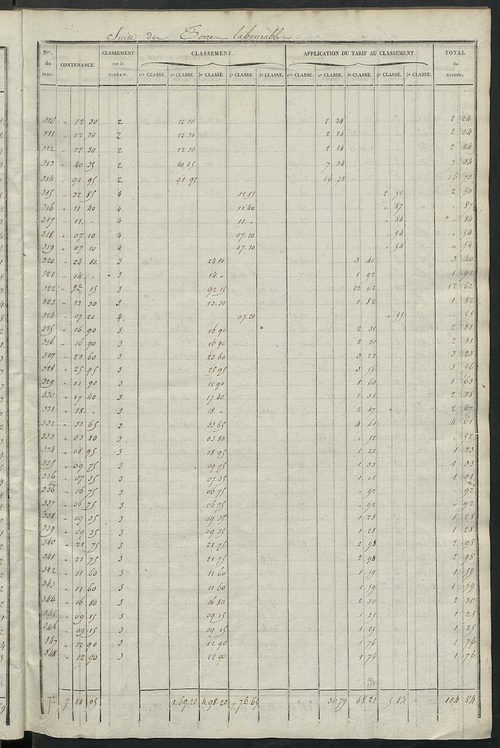 Suite des Terres labourables
Nos. du PLAN. CONTENANCE CLASSEMENT sur le TERRAIN. CLASSEMENT. APPLICATION DU TARIF AU CLASSEMENT. TOTAL du REVENU.
1re CLASSE. 2e CLASSE. 3e CLASSE. 4e CLASSE. 5e CLASSE. 1re CLASSE. 2e CLASSE. 3e CLASSE. 4e CLASSE. 5e CLASSE.
310 " 12 30 2 12 30 2 24 2 24
311 " 12 30 2 12 30 2 24 2 24
312 " 12 30 2 12 30 2 24 2 24
313 " 40 35 2 40 35 7 34 7 34
314 " 91 95 2 91 95 16 73 16 73
315 " 32 85 4 32 85 2 50 2 50
316 " 11 40 4 11 40 " 87 " 87
317 " 11 " 4 11 " " 84 " 84
318 " 07 10 4 07 10 " 54 " 54
319 " 07 10 4 07 10 " 54 " 54
320 " 24 80 3 24 80 3 40 3 40
321 " 14 " 3 14 " 1 92 1 92
322 " 92 15 3 92 15 12 62 12 62
323 " 13 30 3 13 30 1 82 1 82
324 " 07 20 4 07 20 " 55 " 55
325 " 16 90 3 16 90 2 31 2 31
326 " 16 90 3 16 90 2 31 2 31
327 " 23 60 3 23 60 3 23 3 23
328 " 25 95 3 25 95 3 56 3 56
329 " 11 90 3 11 90 1 63 1 63
330 " 17 40 3 17 40 2 38 2 38
331 " 18 " 3 18 " 2 47 2 47
332 " 33 65 3 33 65 4 61 4 61
333 " 03 80 3 03 80 " 52 " 52
334 " 08 95 3 08 95 1 23 1 23
335 " 09 75 3 09 75 1 33 1 33
336 " 07 35 3 07 35 1 01 1 01
336 " 06 75 3 06 75 " 92 " 92
337 " 06 75 3 06 75 " 92 " 92
338 " 09 35 3 09 35 1 28 1 28
339 " 09 35 3 09 35 1 28 1 28
340 " 21 75 3 21 75 2 98 2 98
341 " 21 75 3 21 75 2 98 2 98
342 " 11 60 3 11 60 1 59 1 59
343 " 11 60 3 11 60 1 59 1 59
344 " 16 80 3 16 80 2 30 2 30
345 " 09 15 3 09 15 1 25 1 25
346 " 09 15 3 09 15 1 25 1 25
347 " 12 90 3 12 90 1 76 1 76
348 " 12 90 3 12 90 1 76 1 76
1.69.21 4.98.20 " 76 65 " 30 79 68 21 5 84 " 104 84